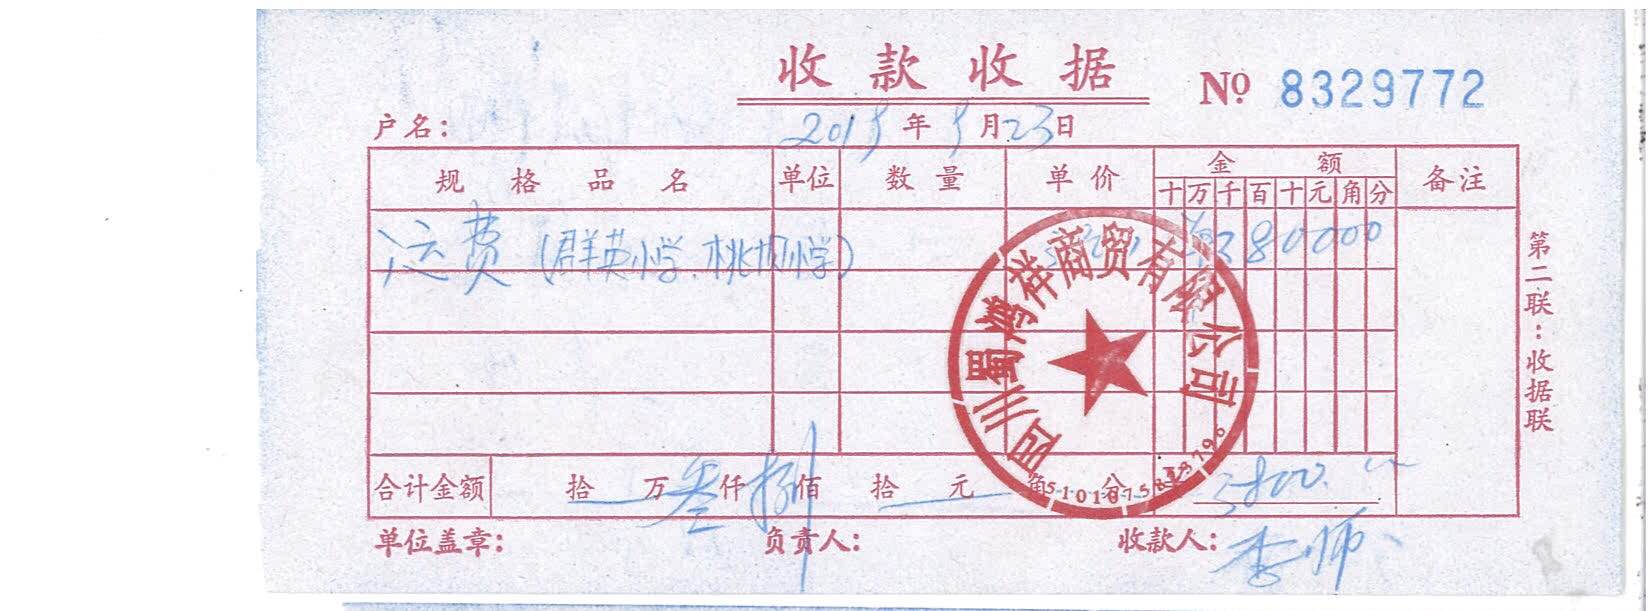 收款收据
№ 8329772
户名：
2019年9月23日
规格品名 单位 数量 单价 金额 备注
十 万 千 百 十 元 角 分
运费（群英小学、桃坝小学） ¥380000
四川蜀鸿祥商贸有限公司
合计金额 拾 万 叁 仟 捌 佰 拾 元 角 分 ¥ 3800.
单位盖章： 负责人： 收款人：李师
第二联：收据联